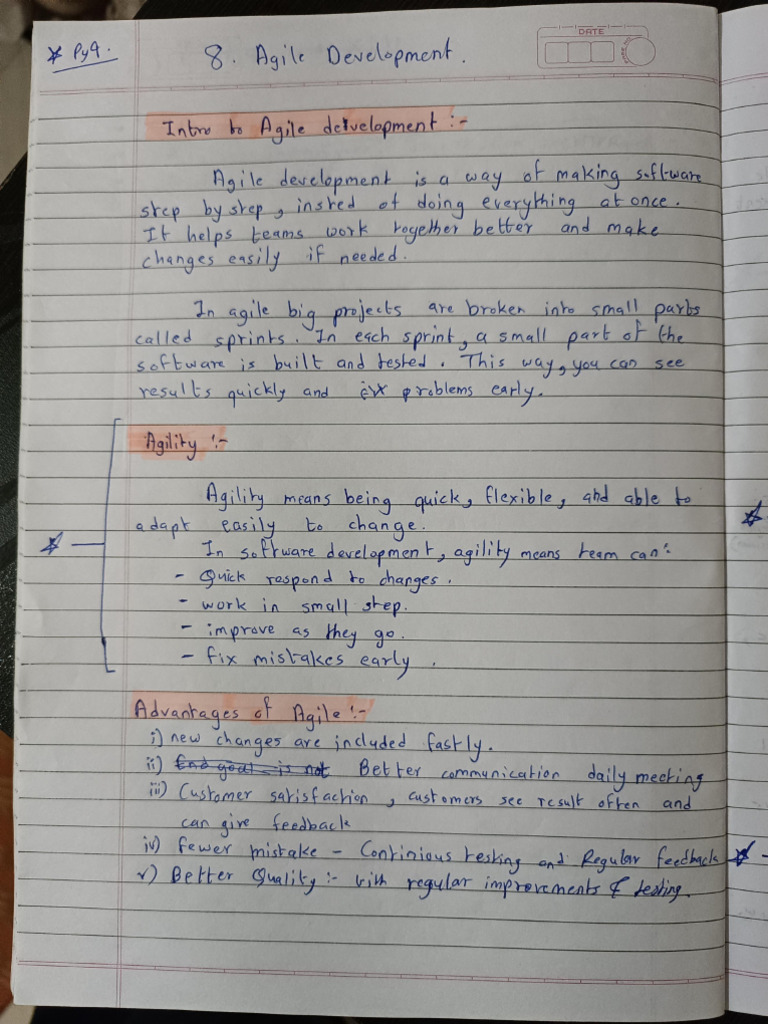 * PyQ.
8. Agile Development.
DATE
Intro to Agile detvelopment :-
Agile development is a way of making software
step by step, insted of doing everything at once.
It helps teams work together better and make
changes easily if needed.
In agile big projects are broken into small parts
called sprints. In each sprint, a small part of the
software is built and tested. This way, you can see
results quickly and problems early.
Agility :-
Agility means being quick, flexible, and able to
adapt easily to change.
In software development, agility means team can:
- Quick respond to changes.
- work in small step.
- improve as they go.
- fix mistakes early.
Advantages of Agile :-
i) new changes are included fastly.
ii) End goal is not Better communication daily meeting
iii) Customer satisfaction, customers see result often and
can give feedback
iv) fewer mistake - Continious testing and Regular feedback
v) Better Quality :- with regular improvements & testing.